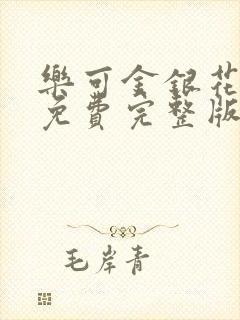 樂可金銀花
免費完整版
毛岸青